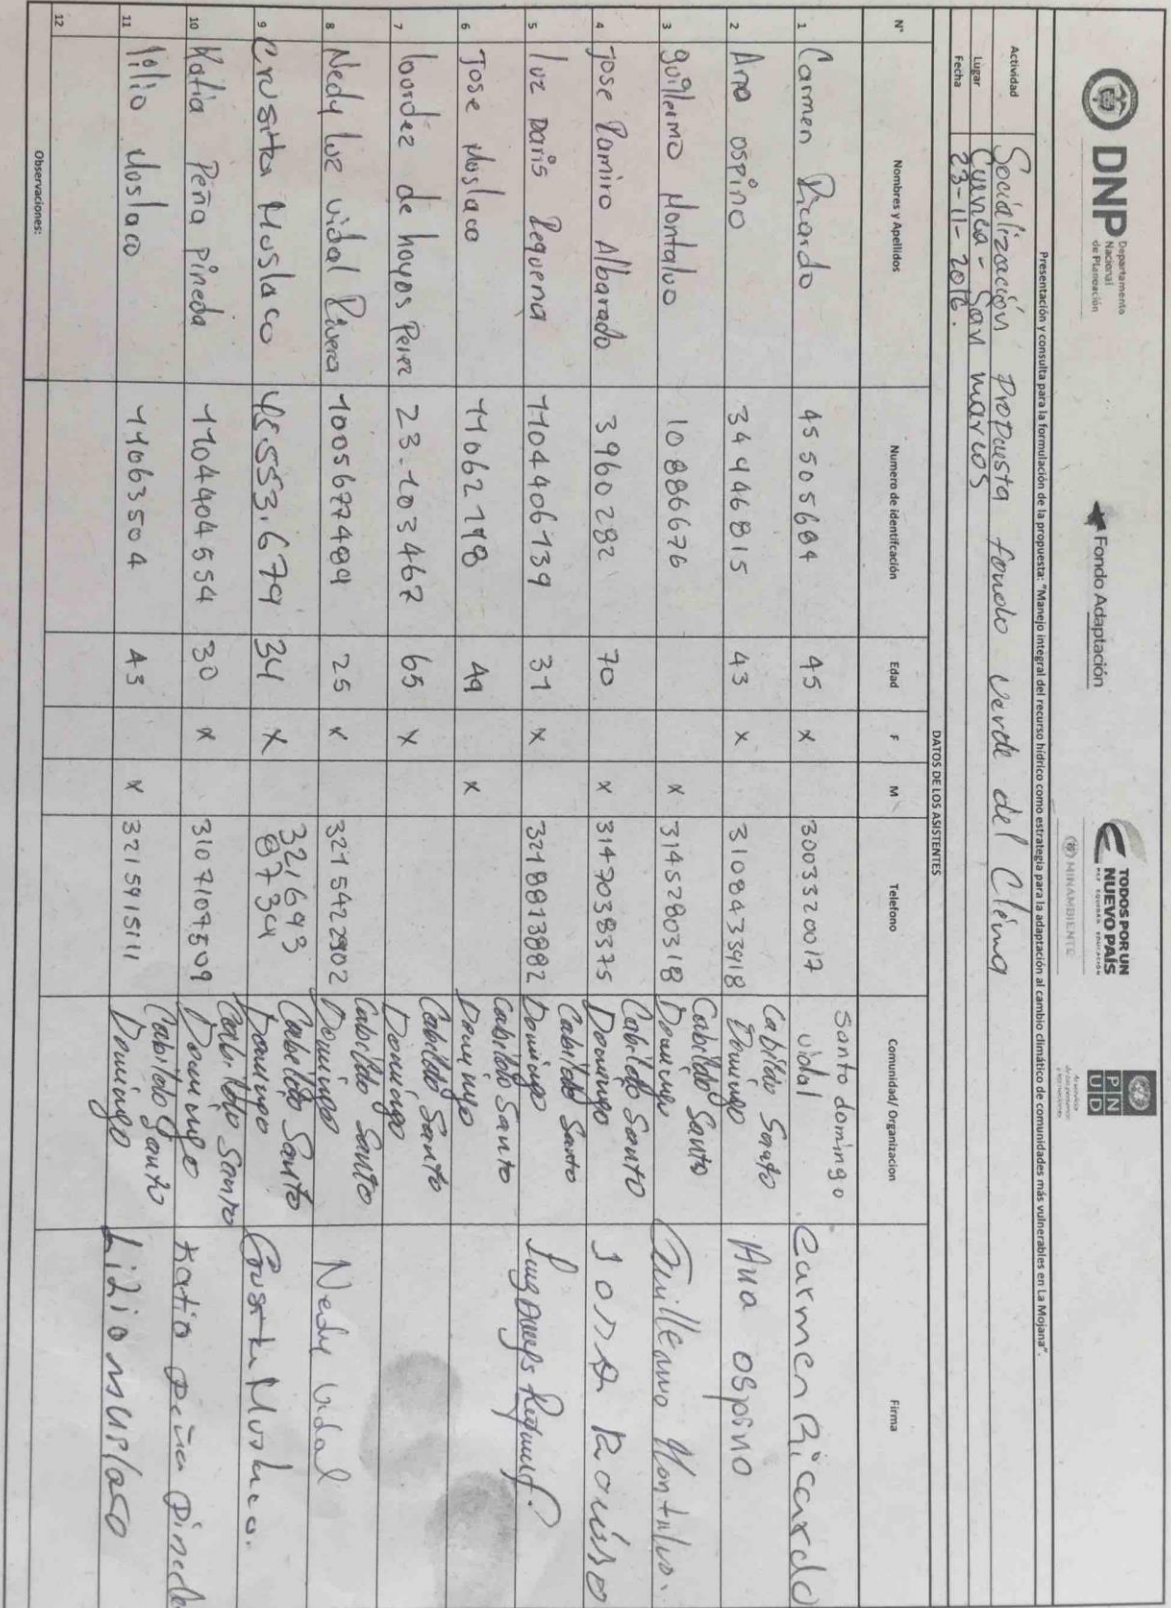 DNP Departamento
Nacional
de Planeación
Fondo Adaptación
TODOS POR UN
NUEVO PAÍS
PAZ EQUIDAD EDUCACIÓN
MINAMBIENTE
PNUD
Presentación y consulta para la formulación de la propuesta: "Manejo integral del recurso hídrico como estrategia para la adaptación al cambio climático de comunidades más vulnerables en La Mojana".
Actividad Socialización propuesta fondo verde del Clima
Lugar Cuenca - San marcos
Fecha 23-11-2016.
DATOS DE LOS ASISTENTES
N° Nombres y Apellidos Numero de identifcación Edad F M Telefono Comunidad/ Organizacion Firma
1 Carmen Ricardo 45505684 45 x 3003320017 Santo domingo vidal Carmen Ricardo
2 Ana ospino 34946815 43 x 3108433918 Cabildo Santo Domingo Ana ospino
3 guillermo Montalvo 10886676 x 3145280318 Cabildo Santo Domingo Guillermo Montalvo.
4 Jose Ramiro Albarado 3960282 70 x 3147038375 Cabildo Santo Domingo
5 luz Daris Requena 1104406139 31 x 3218813882 Cabildo Santo Domingo
6 Jose Muslaco 11062118 49 x Cabildo Santo Domingo
7 lourdez de hoyos Perez 23.103467 65 x Cabildo Santo Domingo
8 Nedy luz vidal Rivera 1005677489 25 x 3215422902 Cabildo Santo Domingo Nedy Vidal
9 Crusita Muslaco 45.553.679 34 x 321693
8734 Cabildo Santo Domingo Crusita Muslaco.
10 Katia Peña pineda 1104404554 30 x 3107107509 Cabildo Santo Domingo Katia Peña Pineda
11 lilio Muslaco 11063504 43 x 3215915111 Cabildo Santo Domingo Lilio muslaco
12
Observaciones: